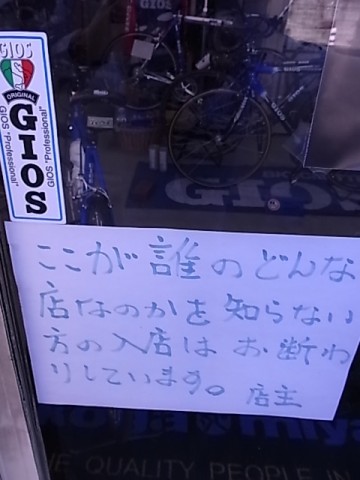 GIOS
GIOS
ORIGINAL
GIOS
GIOS "Professional"
GIOS "Professional"
GIOS
ここが誰のどんな
店なのかを知らない
方の入店はお断わ
りしています。店主
QUALITY PEOPLE IN